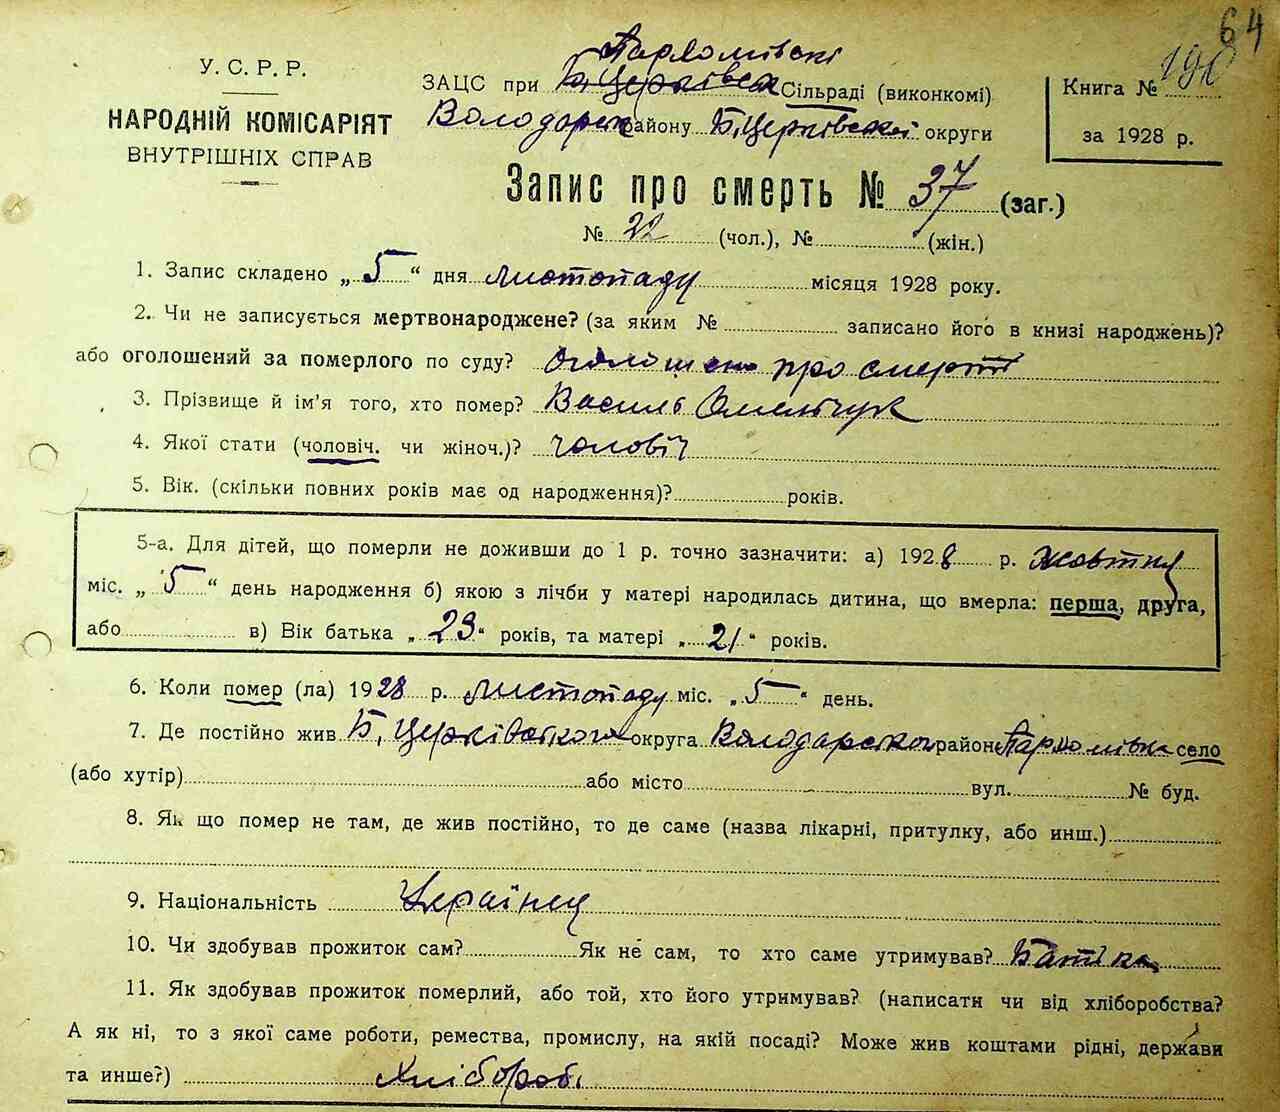 64
У. С. Р. Р.
НАРОДНІЙ КОМІСАРІЯТ
ВНУТРІШНІХ СПРАВ
Пархомівскі
ЗАЦС при Б, Церківск Сільраді (виконкомі)
Володарск району Б, Церківскої округи
Книга № 190
за 1928 р.
Запис про смерть № 37 (заг.)
№ 22 (чол.), № (жін.)
1. Запис складено „ 5 “ дня листопаду місяця 1928 року.
2. Чи не записується мертвонароджене? (за яким № записано його в книзі народжень)?
або оголошений за померлого по суду? Оголошено про смерть
3. Прізвище й ім'я того, хто помер? Василь Омельчук
4. Якої стати (чоловіч. чи жіноч.)? чоловіч
5. Вік. (скільки повних років має од народження)? років.
5-а. Для дітей, що померли не доживши до 1 р. точно зазначити: а) 1928 р. жовтня
міс. „ 5 “ день народження б) якою з лічби у матері народилась дитина, що вмерла: перша, друга,
або в) Вік батька „ 23 “ років, та матері „ 21 “ років.
6. Коли помер (ла) 1928 р. листопаду міс. „ 5 “ день.
7. Де постійно жив Б, Церківского округа Володарского район Пархомівка село
(або хутір) або місто вул. № буд.
8. Як що помер не там, де жив постійно, то де саме (назва лікарні, притулку, або инш.)
9. Національність Українец
10. Чи здобував прожиток сам? Як не сам, то хто саме утримував? Батько
11. Як здобував прожиток померлий, або той, хто його утримував? (написати чи від хліборобства?
А як ні, то з якої саме роботи, ремества, промислу, на якій посаді? Може жив коштами рідні, держави
та инше?) Хлібороб.